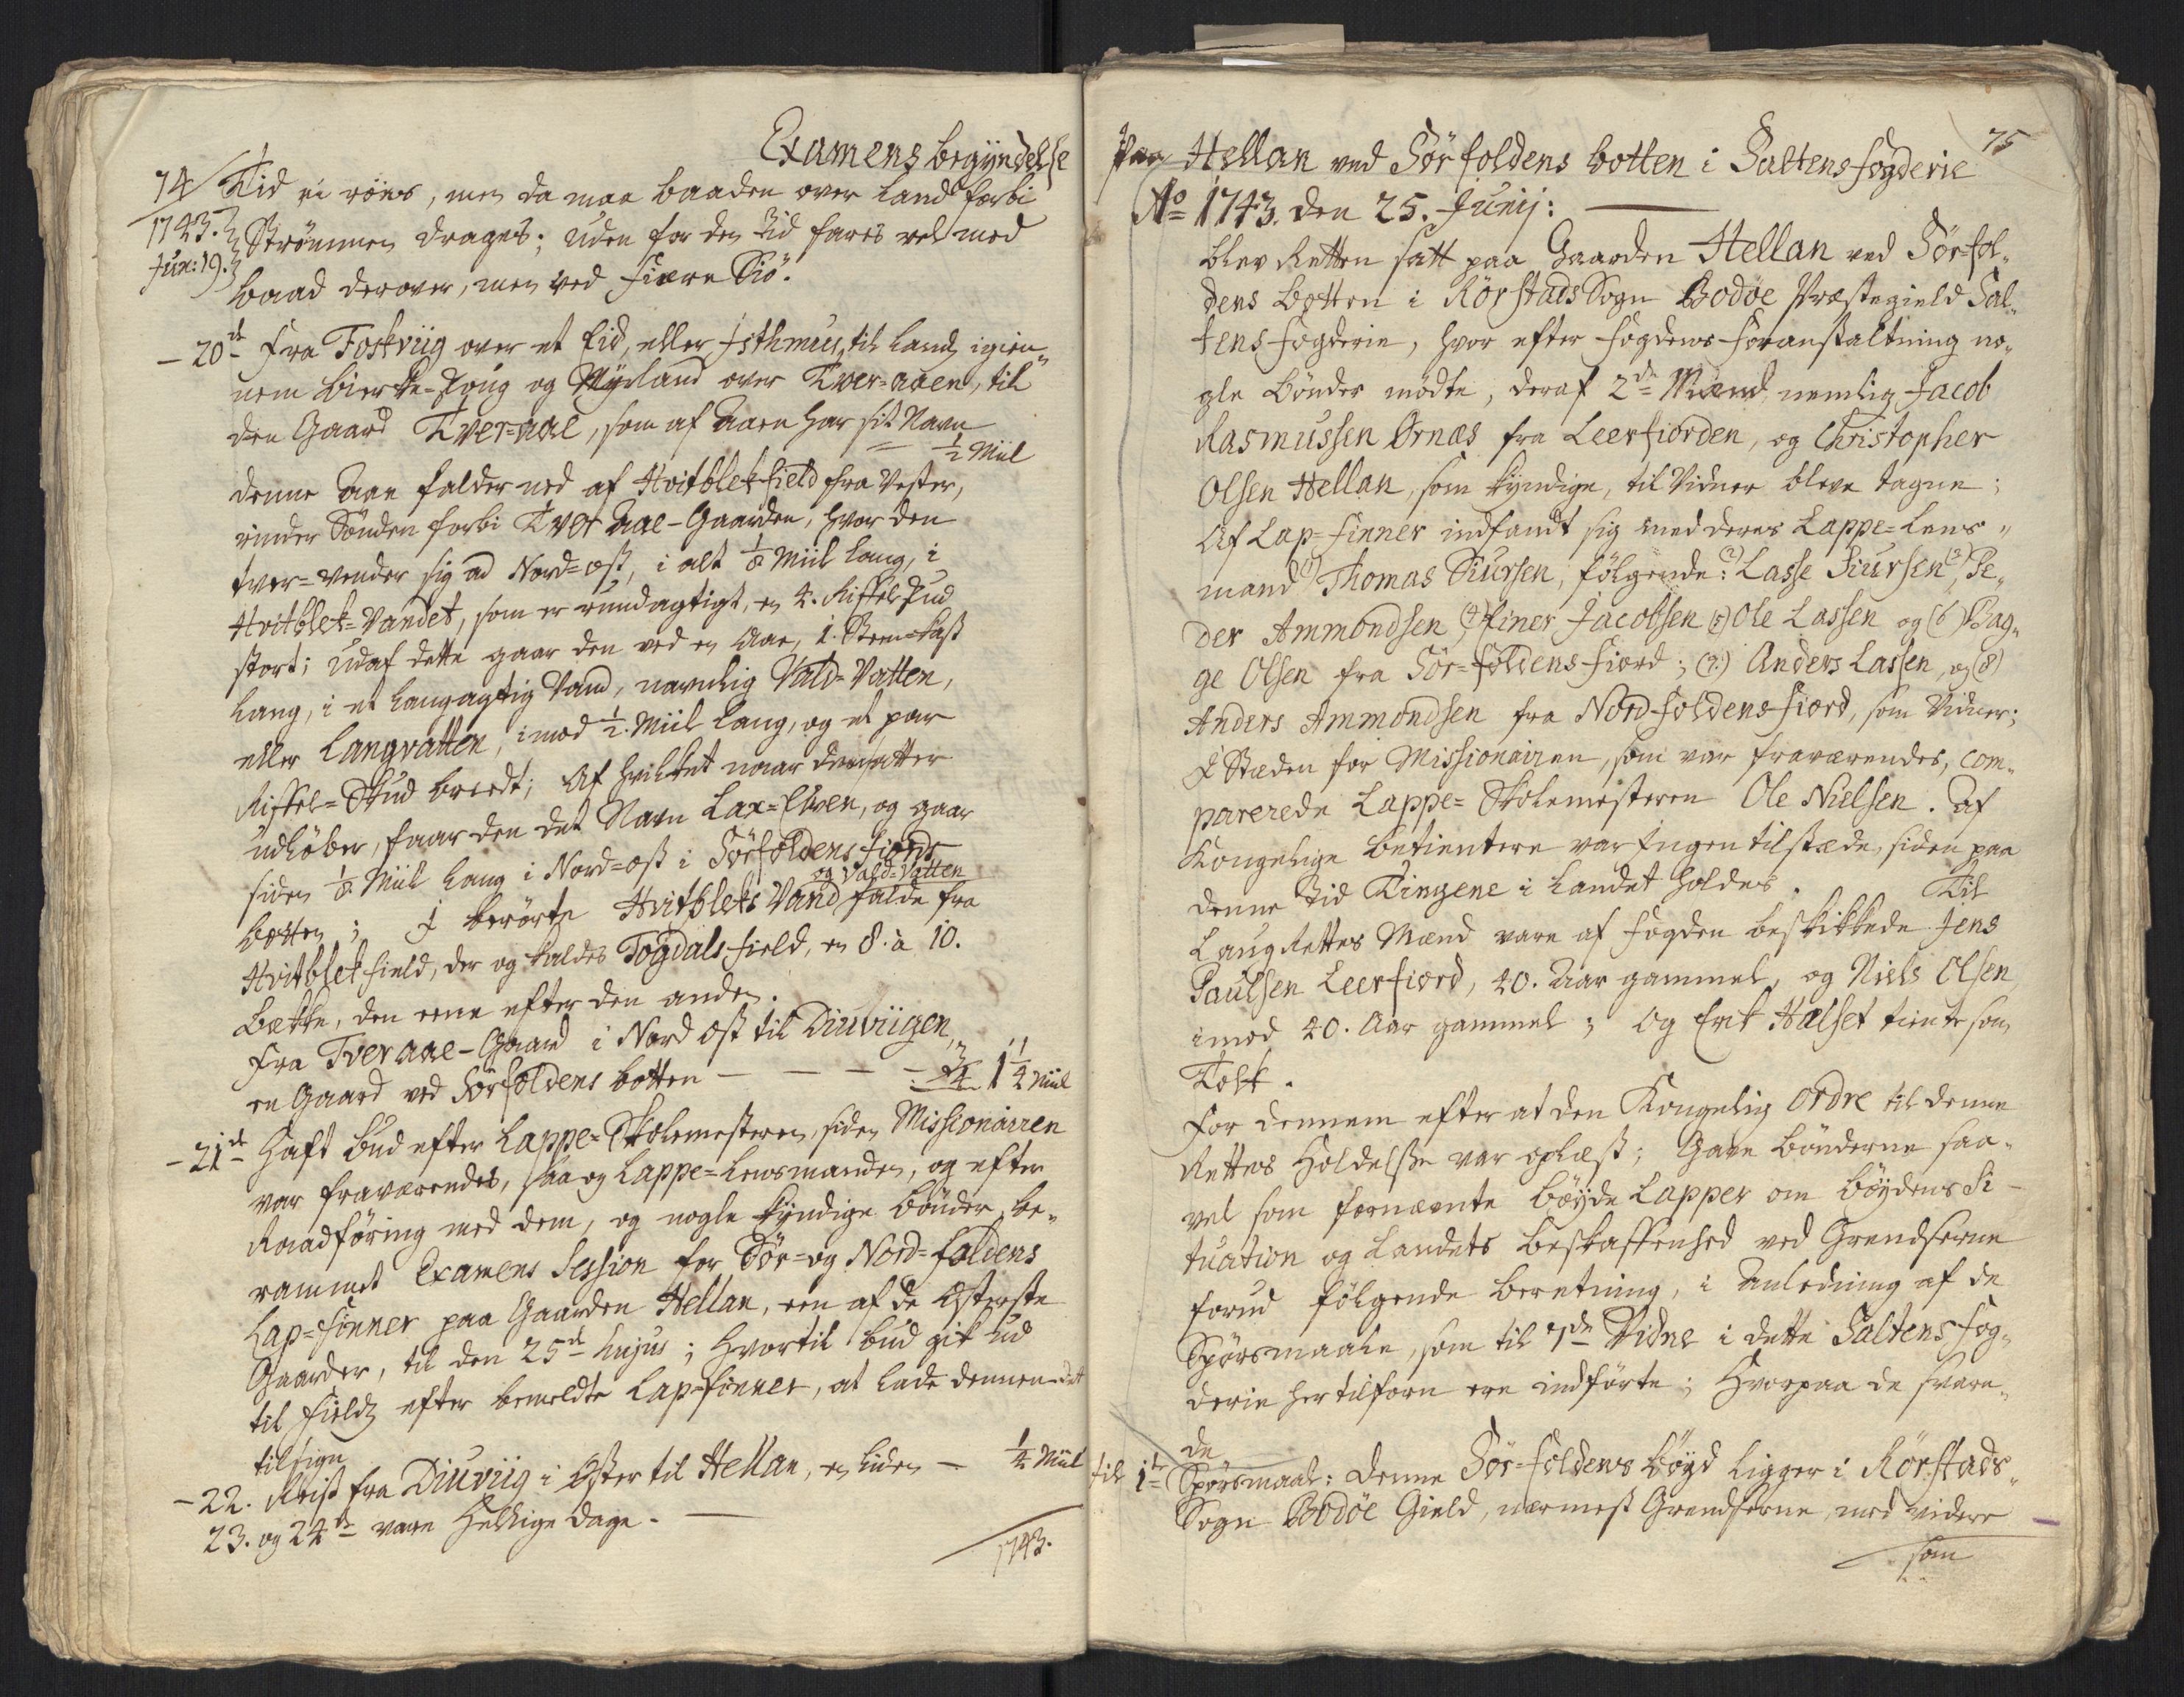 Examens begÿndelse
74 Tid ei röres, men da maa baaden over Land forbi
1743. Strömmen drages; uden for den tid fares vel med
Jun: 19. baad derover, men ved fiære Siö.
- 20de Fra Foskviig over et Eid, eller Isthmus, til Lands igien-
nem Bierke-Skoug og Mÿrland over Tver-aaen, til
den Gaard Tver-aae, som af Aaen har sit Navn
= ½ Miil
denne Aae falder ned af Hvitblekfield fra Vester,
rinder Sönden forbi Tver Aae-Gaarden, hvor den
tver-vender sig ad Nord-ost, i alt ⅛ Miil lang, i
Hvitblek-Vandet, som er rundagtigt, en 4. Riffel-skud
stort; udaf dette gaar den ved en Aae, 1. Steen-kast
lang, i et langagtig Vand, navnlig Vald-Vatten,
eller Langvatten, imod ½. Miil lang, og et par
Riffel-Skud breedt; Af hvilket naar den atter
udlöber, faar den det Navn Lax-Elven, og gaar
siden ⅛ Miil lang i Nord-ost i Sörfoldens fiords
og Vald-Vatten
botten; I berörte Hvitbleks Vand falde fra
Hvitblekfield, der og kaldes Togdalsfield, en 8. à 10.
Bække, den eene efter den anden.
Fra Tver aae-Gaard i Nord Ost til Diuviigen,
en Gaard ved Sörfoldens botten - - - - ¾ 1¼ Miil
- 21de Haft bud efter Lappe-Skolemesteren, siden Missionairen
var fraværendes, saa og Lappe-Lensmanden, og efter
Raadföring med dem, og nogle kÿndige bönder, be-
rammet Examens Session for Sör- og Nord-foldens
Lap-finner paa Gaarden Hellan, een af de Østerste
Gaarder, til den 25de hujus; Hvortil bud gik ud
til Fields efter bemeldte Lap-finner, at lade dennem det
tilsige
- 22. Reist fra Diuviig i Øster til Hellan, en liden - ¼ Miil
23. og 24de vare Hellige Dage. -
1743.
75
Paa Hellan ved Sörfoldens botten i Saltens fogderie
Ao 1743. den 25. Junij:
blev Retten satt paa Gaarden Hellan ved Sör-fol-
dens botten i Rörstads Sogn Bodöe Præstegield Sal-
tens fogderie, hvor efter Fogdens Foranstaltning no-
gle Bönder mödte, deraf 2de Mænd nemlig Jacob
Rasmussen Ørnæs fra Leerfiorden, og Christopher
Olsen Hellan, som kÿndige, til Vidner bleve tagne;
Af Lap-finner indfandt sig med deres Lappe-Lens-
mand (1) Thomas Siursen, fölgende: (2) Lasse Siursen (3), Pe-
der Ammondsen (4) Einer Jacobsen (5) Ole Lassen og (6) Bag-
ge Olsen fra Sör-foldens-fiord; (7.) Anders Lassen, og (8)
Anders Ammondsen fra Nord-foldens-fiord, som Vidner;
I Stæden for Missionairen, som var fraværendes, com-
parerede Lappe-Skolemesteren Ole Nielsen. Af
Kongelige betientere var Ingen tilstæde, siden paa
denne tid Tingene i Landet holdes. Til
LaugRettes Mænd vare af Fogden beskikkede Jens
Paulsen Leerfiord, 40. Aar gammel, og Niels Olsen
imod 40. Aar gammel; og Erik Halset tiente som
Tolk.
For dennem efter at den Kongelig Ordre til denne
Rettes Holdelse var oplæst; Gave Bönderne saa-
vel som fornævnte Böyde Lapper om böydens Si-
tuation og Landets beskaffenhed ved Grendserne
forud fölgende beretning, i Anledning af de
Spörsmaale, som til 1de Vidne i dette Saltens fog-
derie hertilforn ere indförte; Hvorpaa de svare-
de
til 1te Spörsmaal: denne Sör-foldens böyd ligger i Rörstads-
Sogn Bodöe Gield, nærmest Grendserne, med videre
som